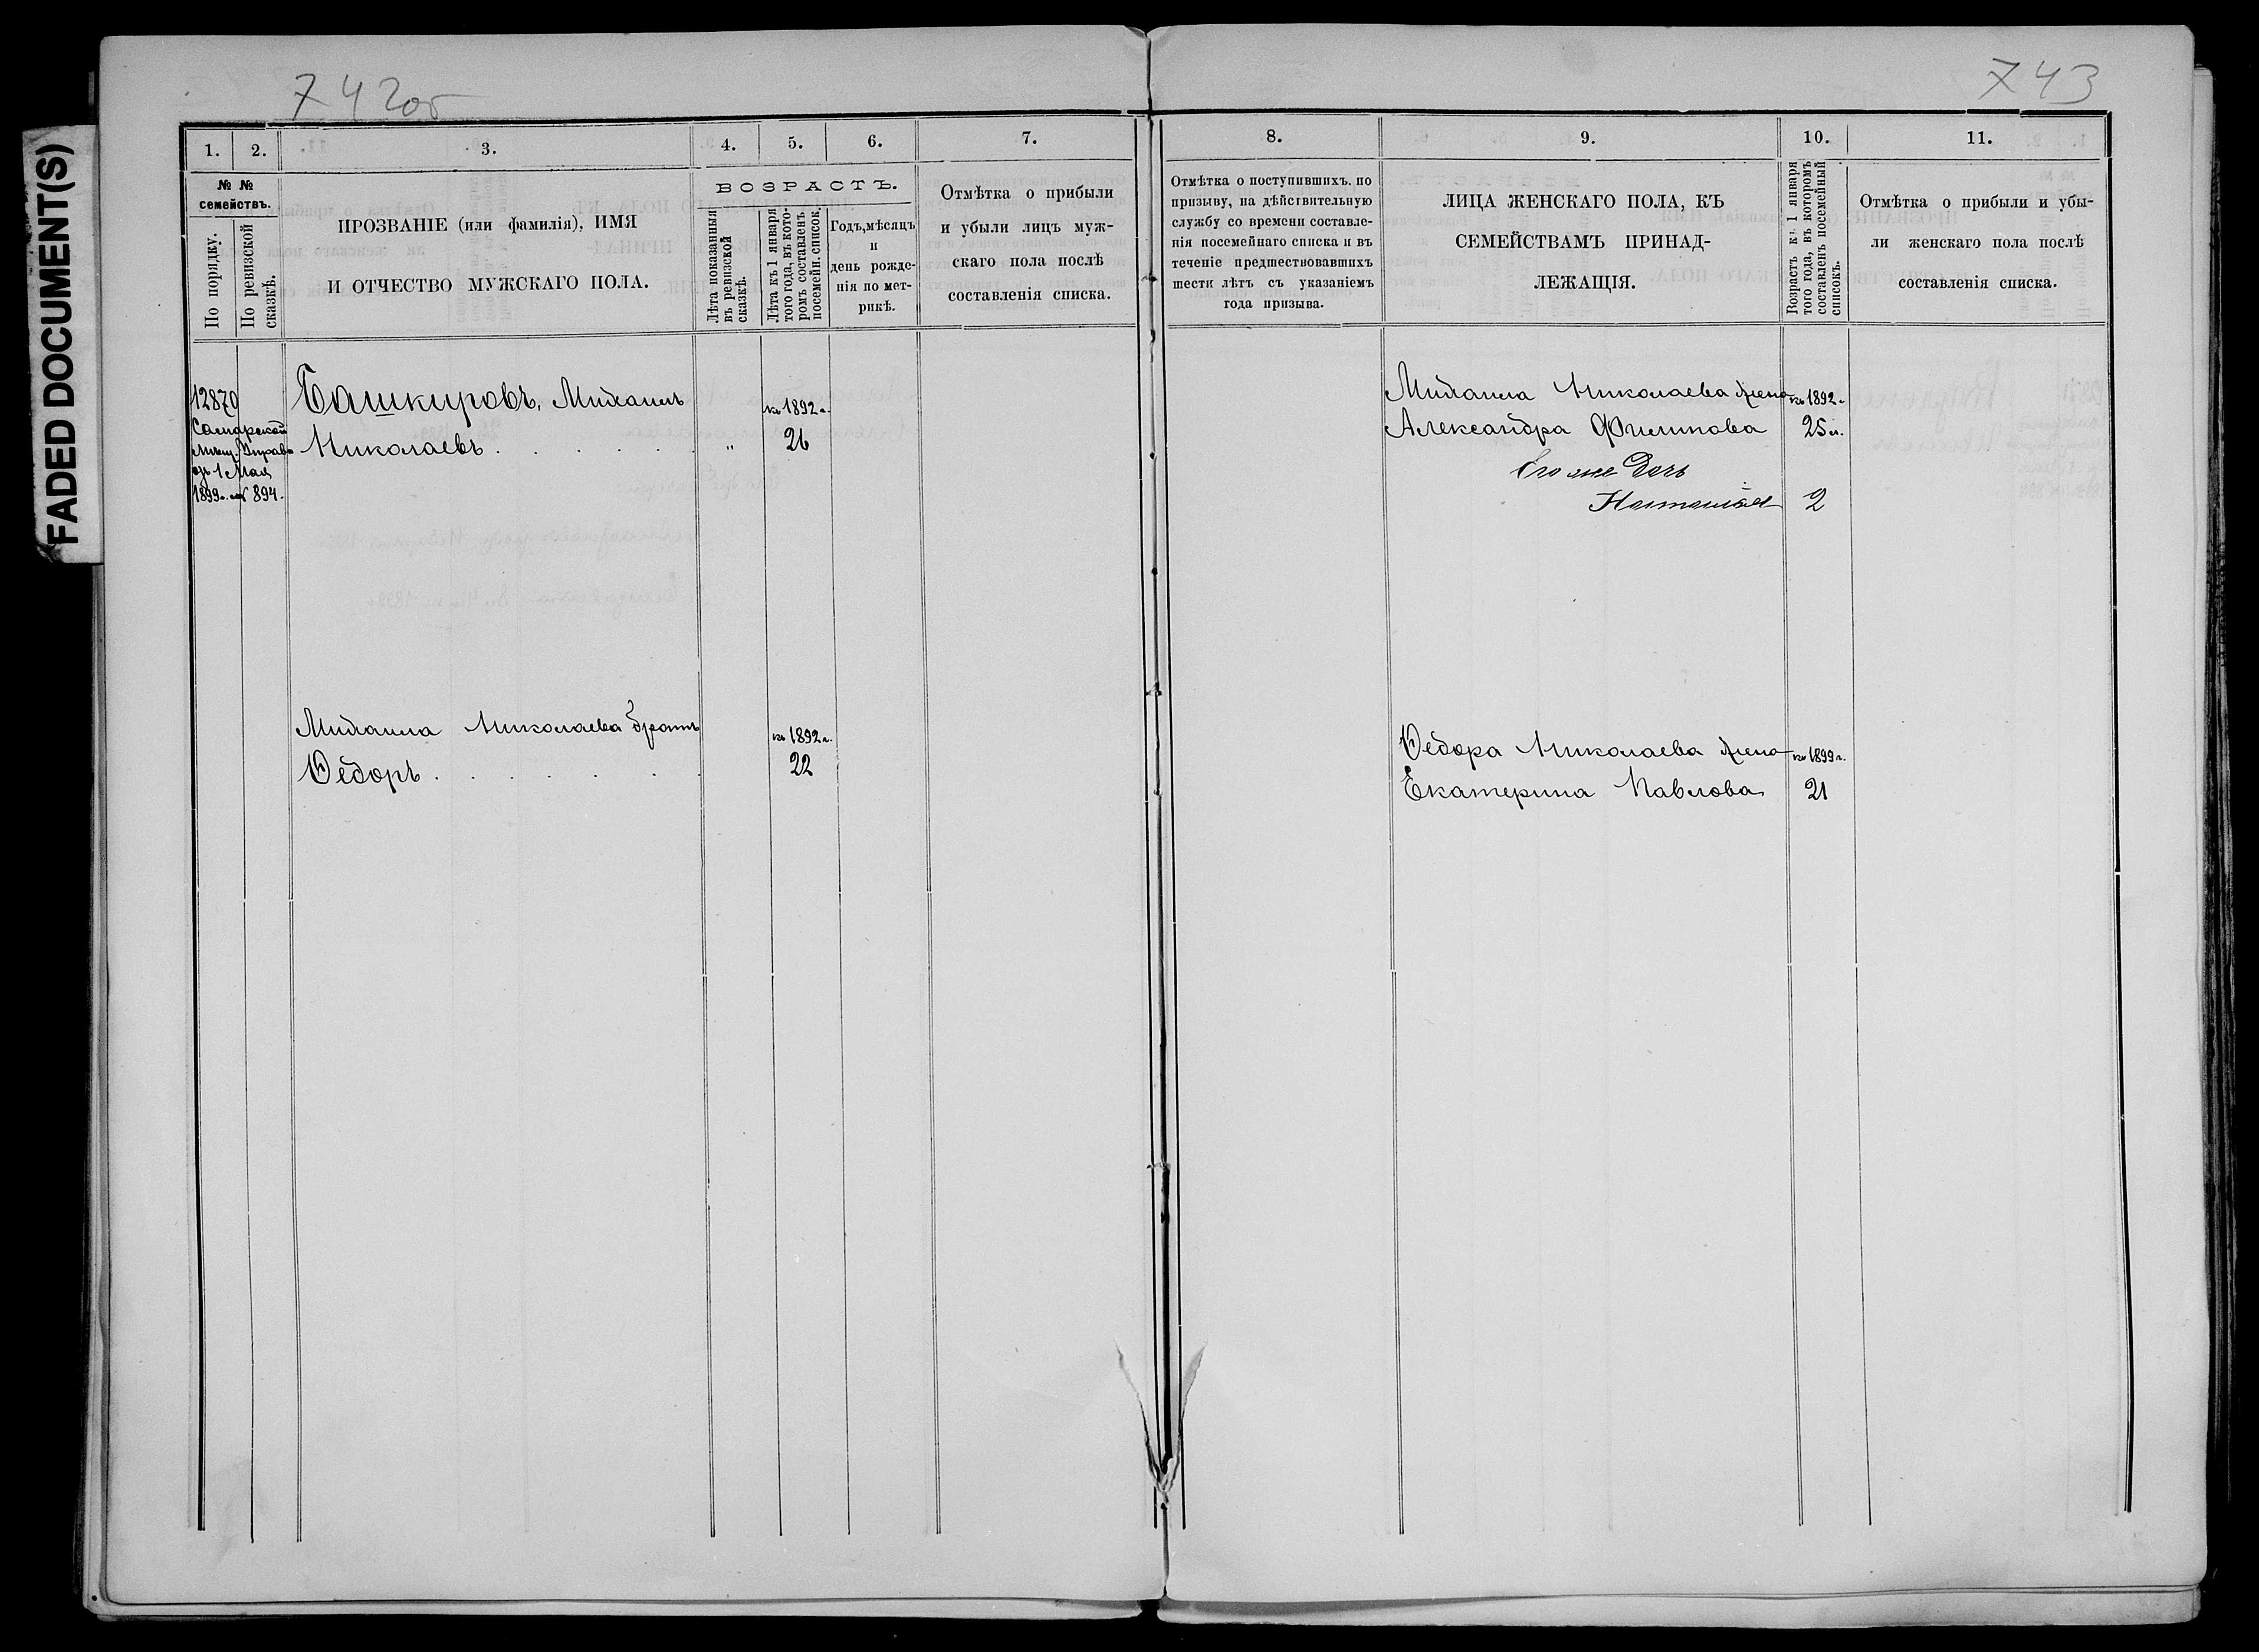 FADED DOCUMENT(S)
742об
743
1.
2.
3.
4.
5.
6.
7.
8.
9.
10.
11.
№ №
семействъ.
По порядку.
По ревизской
сказкѣ.
ПРОЗВАНІЕ (или фамилія), ИМЯ
И ОТЧЕСТВО МУЖСКАГО ПОЛА.
ВОЗРАСТЪ.
Лѣта показанныя
въ ревизской
сказкѣ.
Лѣта къ 1 января
того года, въ кото-
ромъ составленъ
посемейн. список.
Годъ, мѣсяцъ
и
день рожде-
нія по мет-
рикѣ.
Отмѣтка о прибыли
и убыли лицъ муж-
скаго пола послѣ
составленія списка.
Отмѣтка о поступившихъ. по
призыву, на дѣйствительную
службу со времени составле-
нія посемейнаго списка и въ
теченіе предшествовавшихъ
шести лѣтъ съ указаніемъ
года призыва.
ЛИЦА ЖЕНСКАГО ПОЛА, КЪ
СЕМЕЙСТВАМЪ ПРИНАД-
ЛЕЖАЩІЯ.
Возрастъ къ 1 января
того года, въ которомъ
составленъ посемейный
списокъ.
Отмѣтка о прибыли и убы-
ли женскаго пола послѣ
составленія списка.
12870
Самарской
мѣщ. Управы
отъ 1 Мая
1899 г. № 894.
Башкировъ, Михаилъ
Николаевъ . . . . . . „
къ 1892 г.
26
Михаила Николаева жена
Александра Филипова
къ 1892 г.
25 л.
Его же дочь
Наталія 2
Михаила Николаева братъ
Ѳедоръ . . . . . .
къ 1892 г.
22
Ѳедора Николаева жена
Екатерина Павлова
къ 1899 г.
21